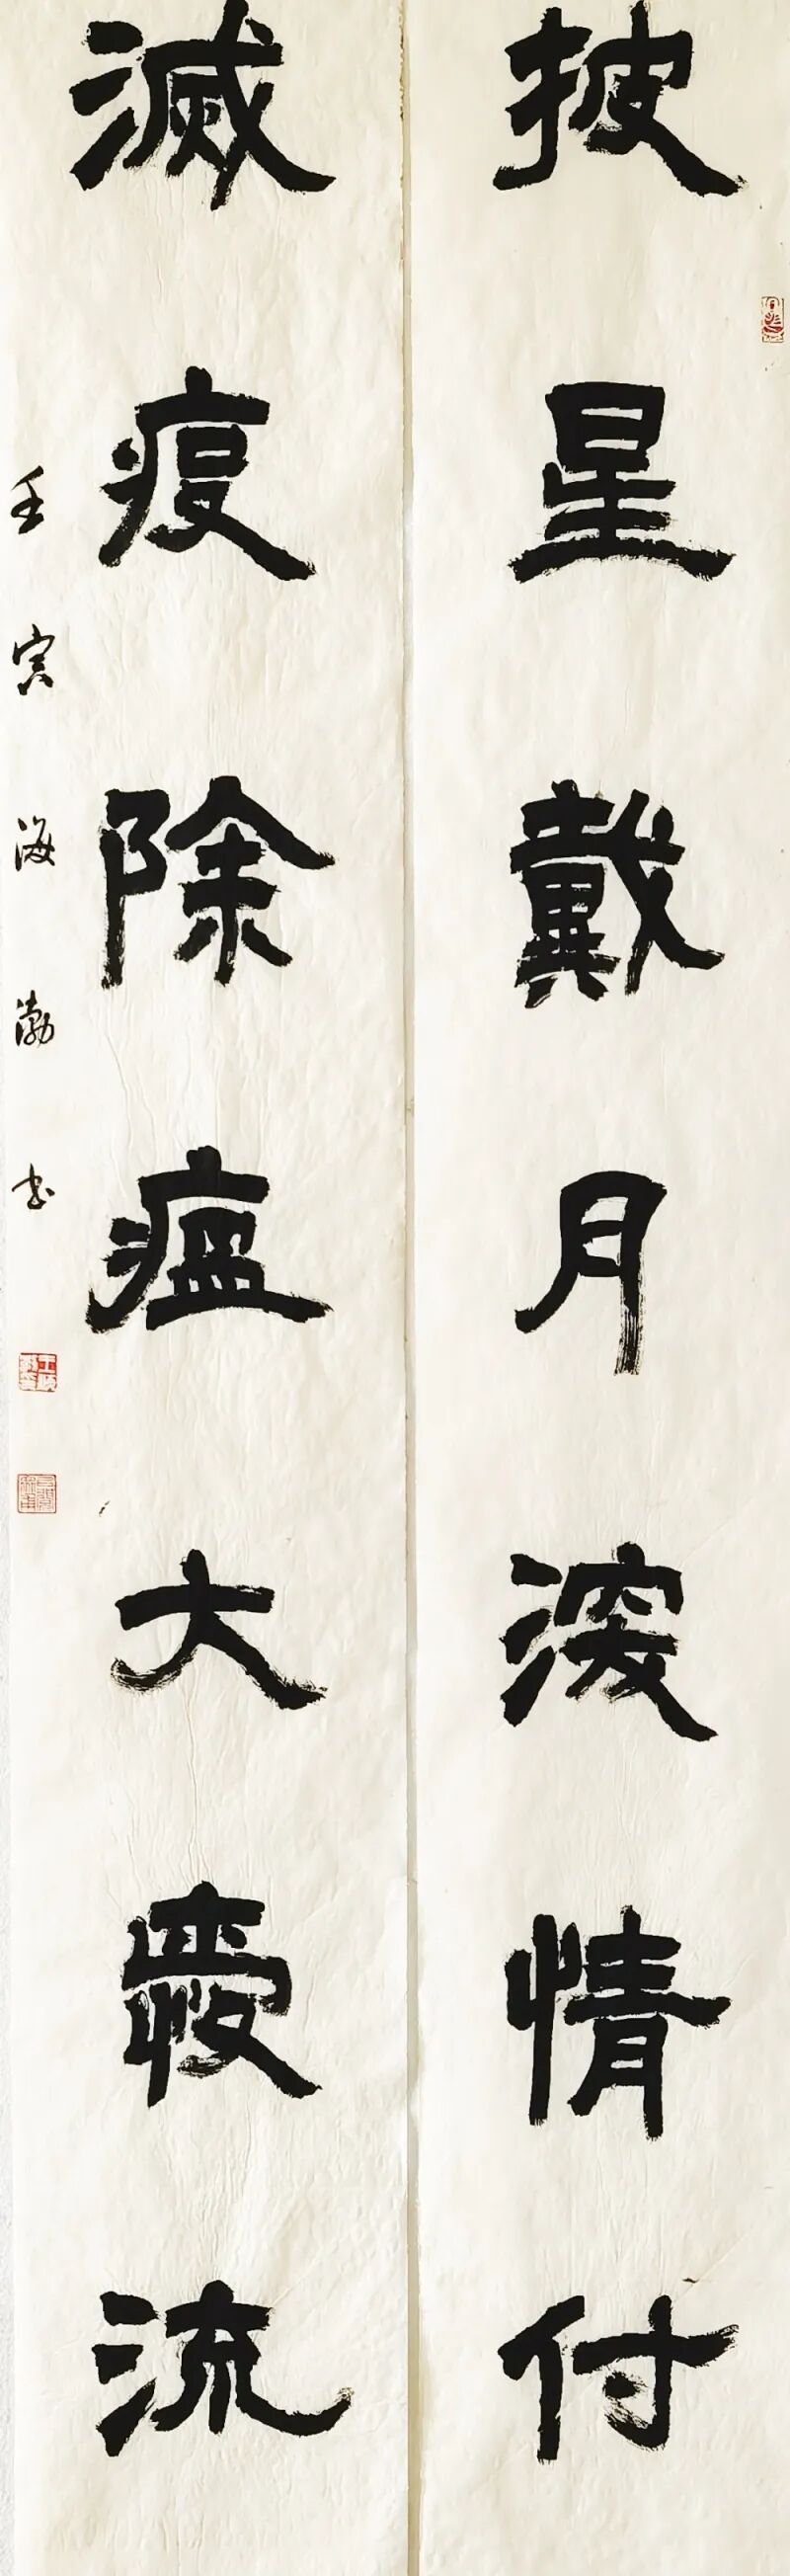 披星戴月深情付
滅疫除瘟大愛流
壬寅海渤书